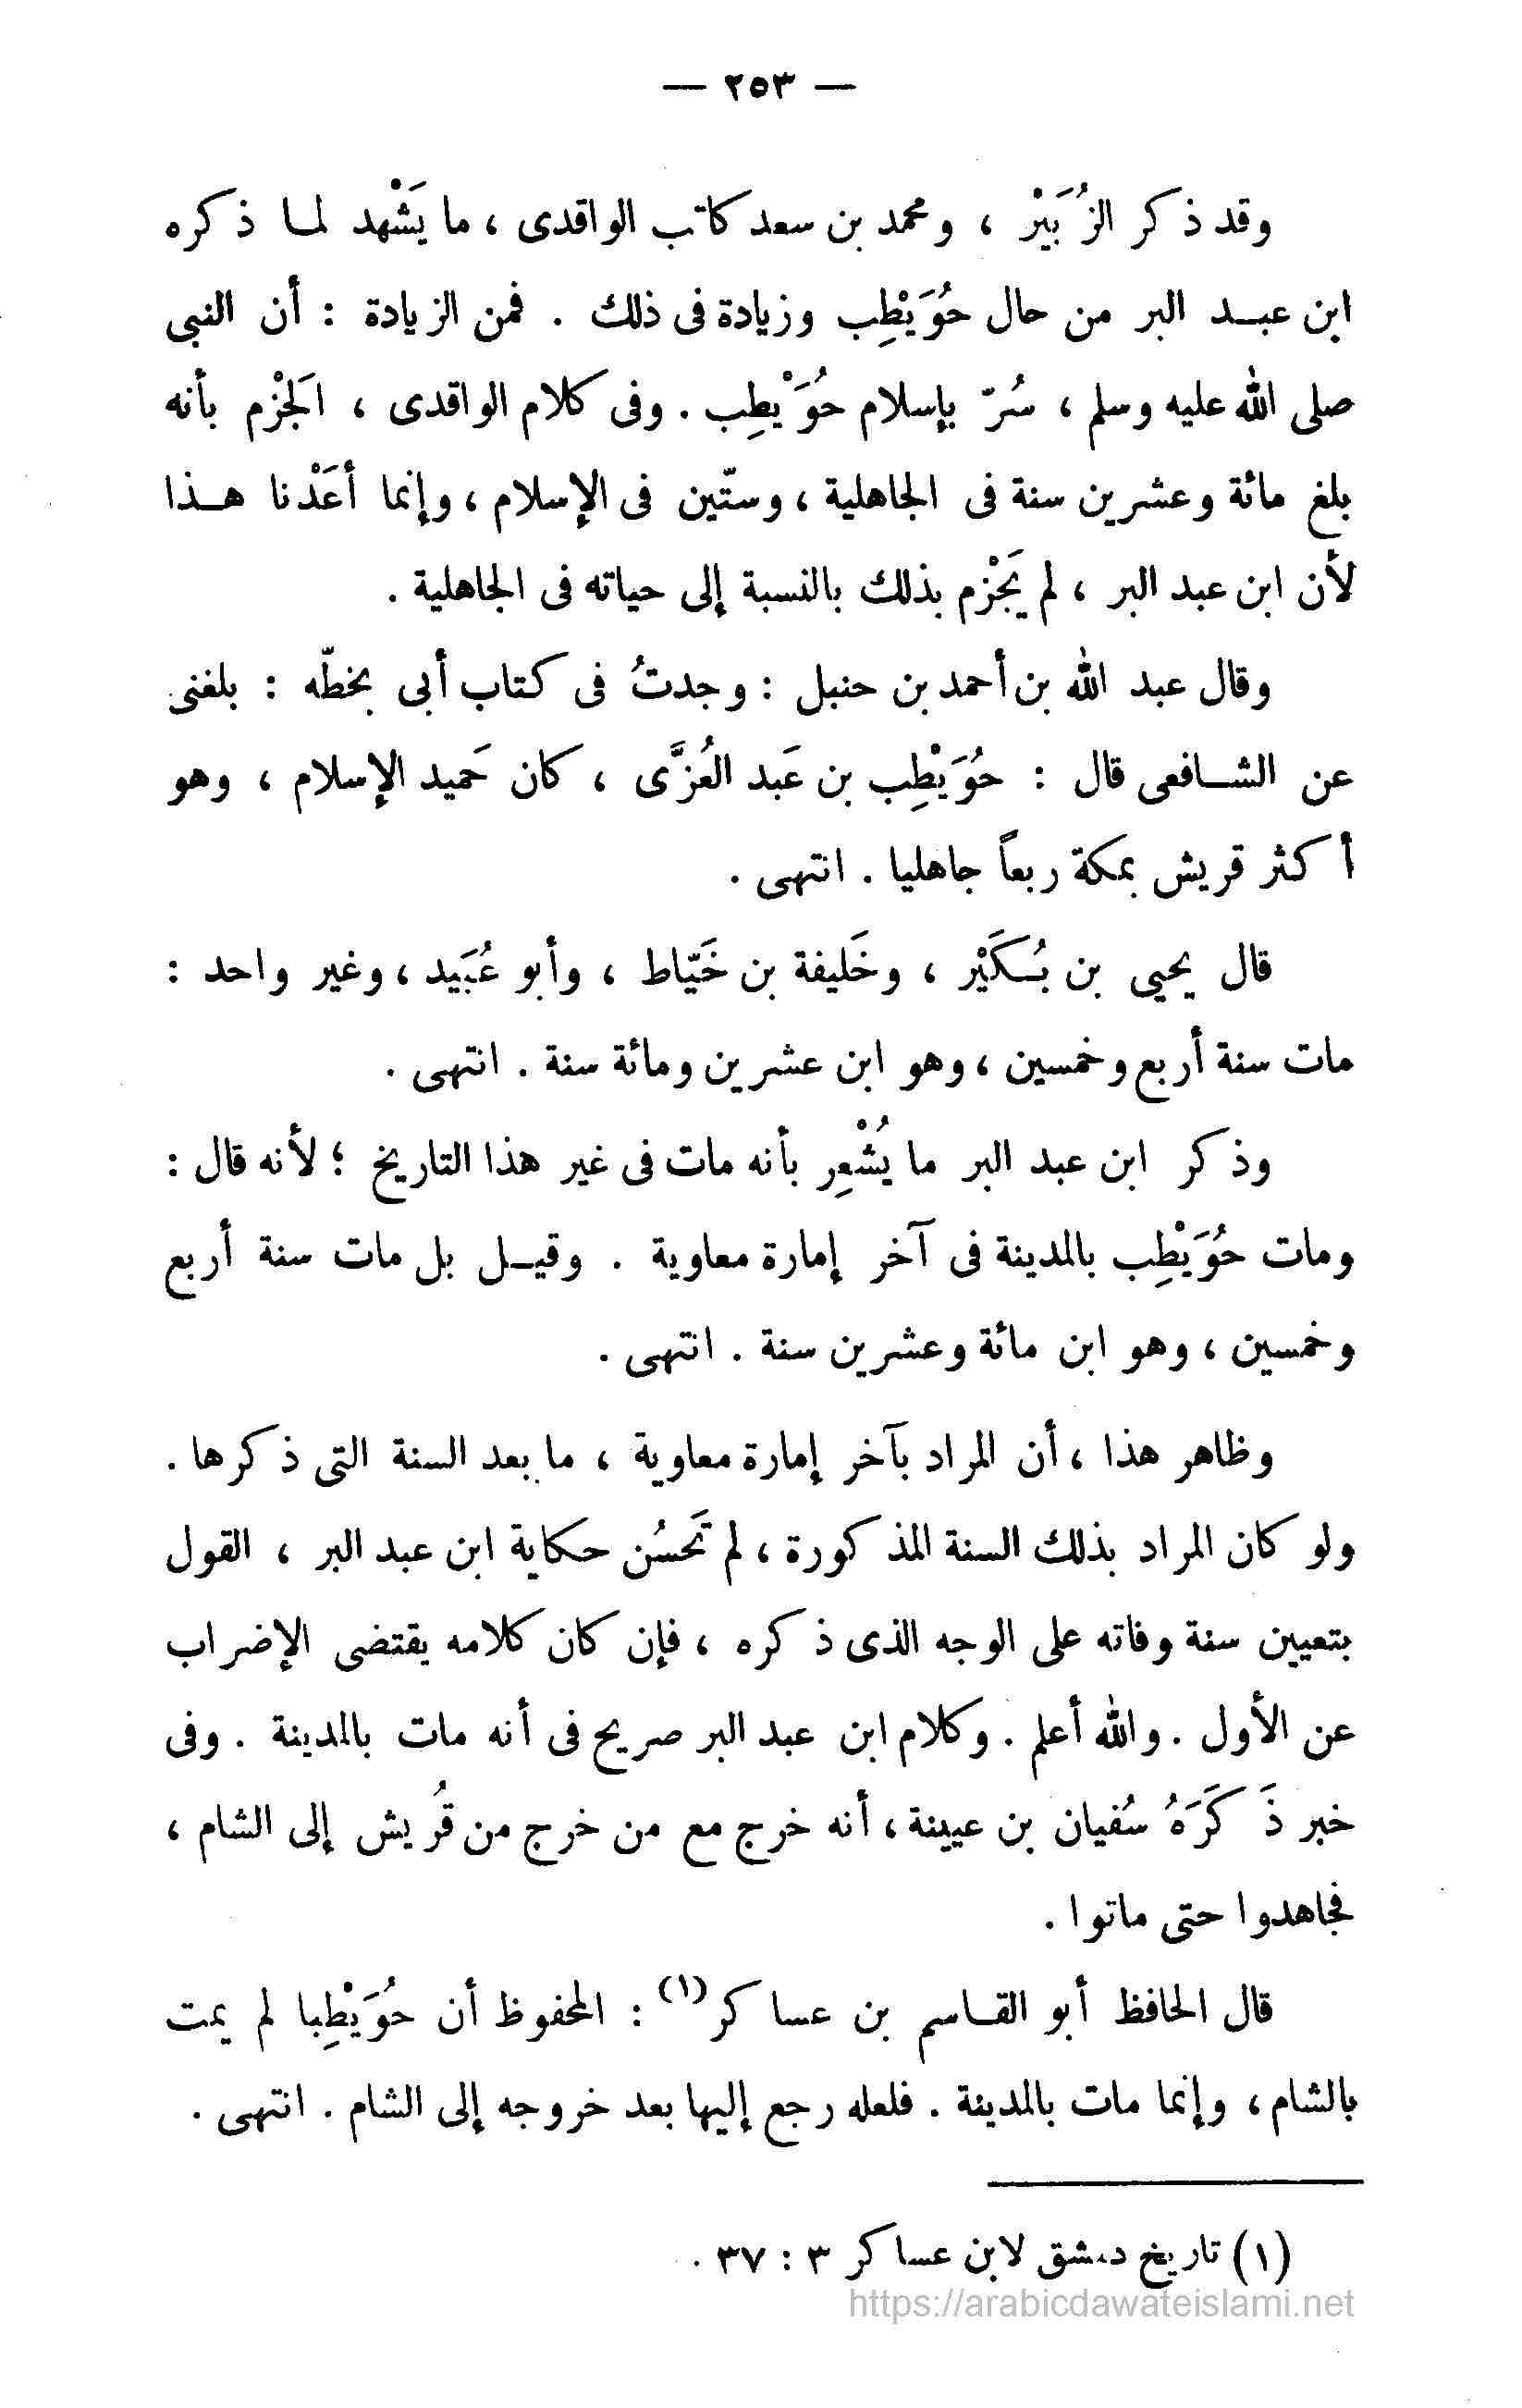 — ٢٥٣ —
وقد ذكر الزُّبَيْر ، ومحمد بن سعد كاتب الواقدى ، ما يَشْهد لمـا ذكره
ابن عبــد البر من حال حُوَيْطِب وزيادة فى ذلك . فمن الزيادة : أن النبى
صلى الله عليه وسلم ، سُرّ بإسلام حُوَيْطِب . وفى كلام الواقدى ، الَجْزم بأنه
بلغ مائة وعشرين سنة فى الجاهلية ، وستّين فى الإسلام ، وإنما أعَدْنا هــذا
لأن ابن عبد البر ، لم يَجْزم بذلك بالنسبة إلى حياته فى الجاهلية .
وقال عبد الله بن أحمد بن حنبل : وجدتُ فى كتاب أبى بخطّه : بلغنى
عن الشــافعى قال : حُوَيْطِب بن عَبد العُزَّى ، كان حَميد الإسلام ، وهو
أكثر قريش بمكة ربعاً جاهليا . انتهى .
قال يحيى بن بُـكَيْر ، وخَليفة بن خَيّاط ، وأبو عُبَيد ، وغير واحد :
مات سنة أربع وخمسين ، وهو ابن عشرين ومائة سنة . انتهى .
وذكر ابن عبد البر ما يُشْعِر بأنه مات فى غير هذا التاريخ ؛ لأنه قال :
ومات حُوَيْطِب بالمدينة فى آخر إمارة معاوية . وقيــل بل مات سنة أربع
وخمسين ، وهو ابن مائة وعشرين سنة . انتهى .
وظاهر هذا ، أن المراد بآخر إمارة معاوية ، ما بعد السنة التى ذكرها .
ولو كان المراد بذلك السنة المذكورة ، لم تَحسُن حكاية ابن عبد البر ، القول
بتعيين سنة وفاته على الوجه الذى ذكره ، فإن كان كلامه يقتضى الإضراب
عن الأول . والله أعلم . وكلام ابن عبد البر صريح فى أنه مات بالمدينة . وفى
خبر ذَكَرَهُ سُفيان بن عيينة ، أنه خرج مع من خرج من قُريش إلى الشام ،
فجاهدوا حتى ماتوا .
قال الحافظ أبو القــاسم بن عساكر(١) : المحفوظ أن حُوَيْطِبا لم يمت
بالشام ، وإنما مات بالمدينة . فلعله رجع إليها بعد خروجه إلى الشام . انتهى .
(١) تاريخ دمشق لابن عساكر ٣ : ٣٧ .
https://arabicdawateislami.net